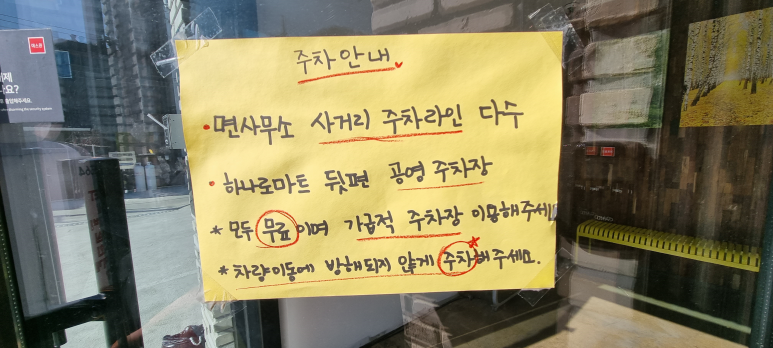 주차안내
• 면사무소 사거리 주차라인 다수
• 하나로마트 뒷편 공영 주차장
* 모두 무료이며 가급적 주차장 이용해주세요
* 차량이동에 방해되지 않게 주차해주세요.
에스원